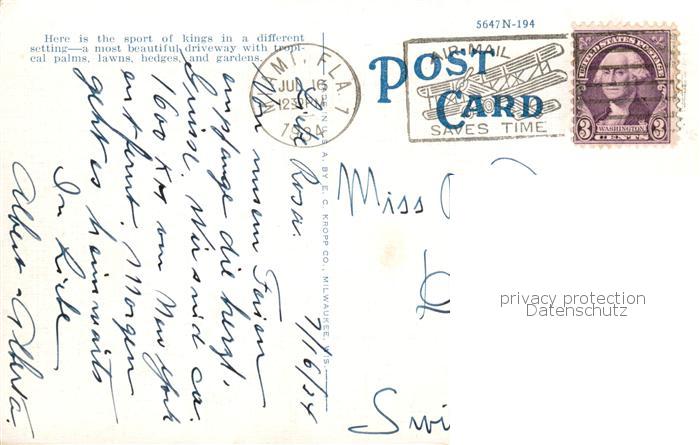 Here is the sport of kings in a different
setting—a most beautiful driveway with tropi-
cal palms, lawns, hedges, and gardens.
5647N-194
POST
CARD
AIR MAIL
SAVES TIME
MIAMI, FLA. 7
JUL 16
1934
UNITED STATES POSTAGE
WASHINGTON
3 CENTS 3
BY E. C. KROPP CO., MILWAUKEE, WIS.
7/16/34
Liebe Rosa.
Von unsern Ferien
empfange die herzl.
Grüsse. Wir sind ca.
1600 Km von New York
entfernt. Morgen
geht es heimwärts
In Liebe
Albert & Alberta.
Miss
Swi
privacy protection
Datenschutz